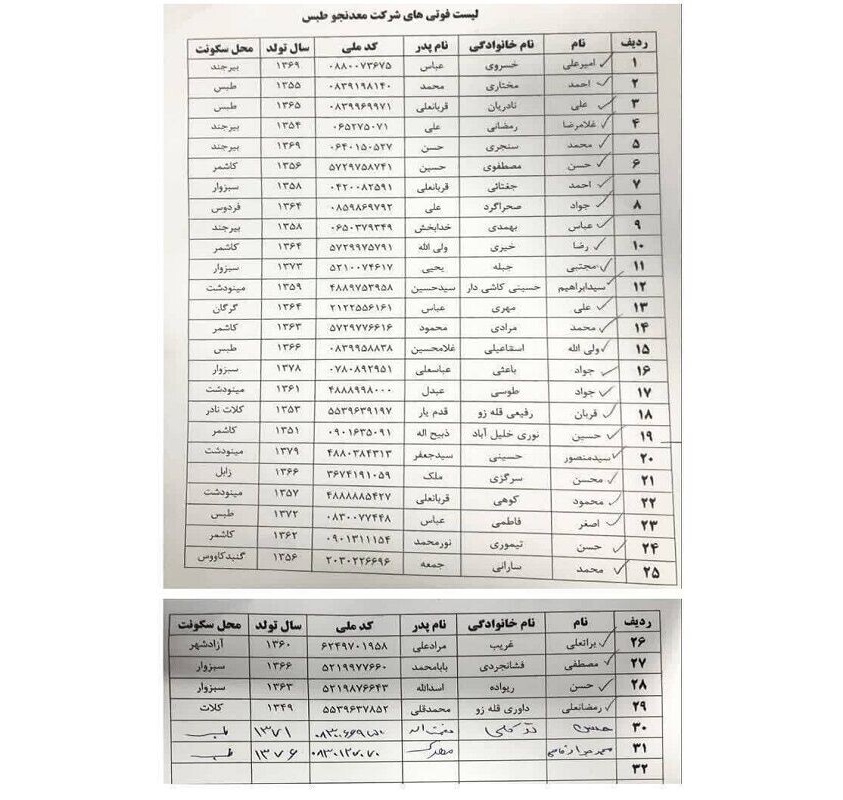 لیست فوتی های شرکت معدنجو طبس
ردیف نام نام خانوادگی نام پدر کد ملی سال تولد محل سکونت
۱ امیرعلی خسروی عباس ۰۸۸۰۰۷۳۶۷۵ ۱۳۶۹ بیرجند
۲ احمد مختاری محمد ۰۸۳۹۱۹۸۱۴۰ ۱۳۵۵ طبس
۳ علی نادریان قربانعلی ۰۸۳۹۹۶۹۹۷۱ ۱۳۶۵ طبس
۴ غلامرضا رمضانی علی ۰۶۵۲۷۵۰۷۱ ۱۳۵۴ بیرجند
۵ محمد سنجری حسن ۰۶۴۰۱۵۰۵۲۷ ۱۳۶۹ بیرجند
۶ حسن مصطفوی حسین ۵۷۲۹۷۵۸۷۴۱ ۱۳۵۶ کاشمر
۷ احمد جغتائی قربانعلی ۰۴۲۰۰۸۲۵۹۱ ۱۳۵۸ سبزوار
۸ جواد صحراگرد علی ۰۸۵۹۸۶۹۷۹۲ ۱۳۶۴ فردوس
۹ عباس بهمدی خدابخش ۰۶۵۰۳۷۹۳۴۹ ۱۳۵۸ بیرجند
۱۰ رضا خیری ولی الله ۵۷۲۹۹۷۵۷۹۱ ۱۳۶۴ کاشمر
۱۱ مجتبی جبله یحیی ۵۲۱۰۰۷۴۶۱۷ ۱۳۷۳ سبزوار
۱۲ سیدابراهیم حسینی کاشی دار سیدحسین ۴۸۸۹۷۵۳۹۵۸ ۱۳۵۹ مینودشت
۱۳ علی مهری عباس ۲۱۲۲۵۵۶۱۶۱ ۱۳۶۴ گرگان
۱۴ محمد مرادی محمود ۵۷۲۹۷۷۶۶۱۶ ۱۳۶۳ کاشمر
۱۵ ولی الله اسقاعیلی غلامحسین ۰۸۳۹۹۵۸۸۳۸ ۱۳۶۶ طبس
۱۶ جواد باعثی عباسعلی ۰۷۸۰۸۹۲۹۵۱ ۱۳۷۸ سبزوار
۱۷ جواد طوسی عبدل ۴۸۸۸۹۹۸۰۰۰ ۱۳۶۱ مینودشت
۱۸ قربان رفیعی قله زو قدم یار ۵۵۳۹۶۳۹۱۹۷ ۱۳۵۳ کلات نادر
۱۹ حسین نوری خلیل آباد ذبیح اله ۰۹۰۱۶۳۵۰۹۱ ۱۳۵۱ کاشمر
۲۰ سیدمنصور حسینی سیدجعفر ۴۸۸۰۳۸۴۳۱۳ ۱۳۷۹ مینودشت
۲۱ محسن سرگزی ملک ۳۶۷۴۱۹۱۰۵۹ ۱۳۶۶ زابل
۲۲ محمود کوهی قربانعلی ۴۸۸۸۸۸۵۴۲۷ ۱۳۵۷ مینودشت
۲۳ اصغر فاطمی عباس ۰۸۳۰۰۷۷۴۴۸ ۱۳۷۲ طبس
۲۴ حسن تیموری نورمحمد ۰۹۰۱۳۱۱۱۵۴ ۱۳۶۲ کاشمر
۲۵ محمد سارانی جمعه ۲۰۳۰۲۲۶۶۹۶ ۱۳۵۶ گنبدکاووس
ردیف نام نام خانوادگی نام پدر کد ملی سال تولد محل سکونت
۲۶ براتعلی غریب مرادعلی ۶۲۴۹۷۰۱۹۵۸ ۱۳۶۰ آزادشهر
۲۷ مصطفی فشانجردی بابامحمد ۵۲۱۹۹۷۷۶۶۰ ۱۳۶۶ سبزوار
۲۸ حسن ریواده اسدالله ۵۲۱۹۸۷۶۶۴۳ ۱۳۶۳ سبزوار
۲۹ رمضانعلی داوری قله زو محمدقلی ۵۵۳۹۶۳۷۸۵۲ ۱۳۴۹ کلات
۳۰ ۱۳۷۱ طبس
۳۱ ۱۳۷۶ طبس
۳۲